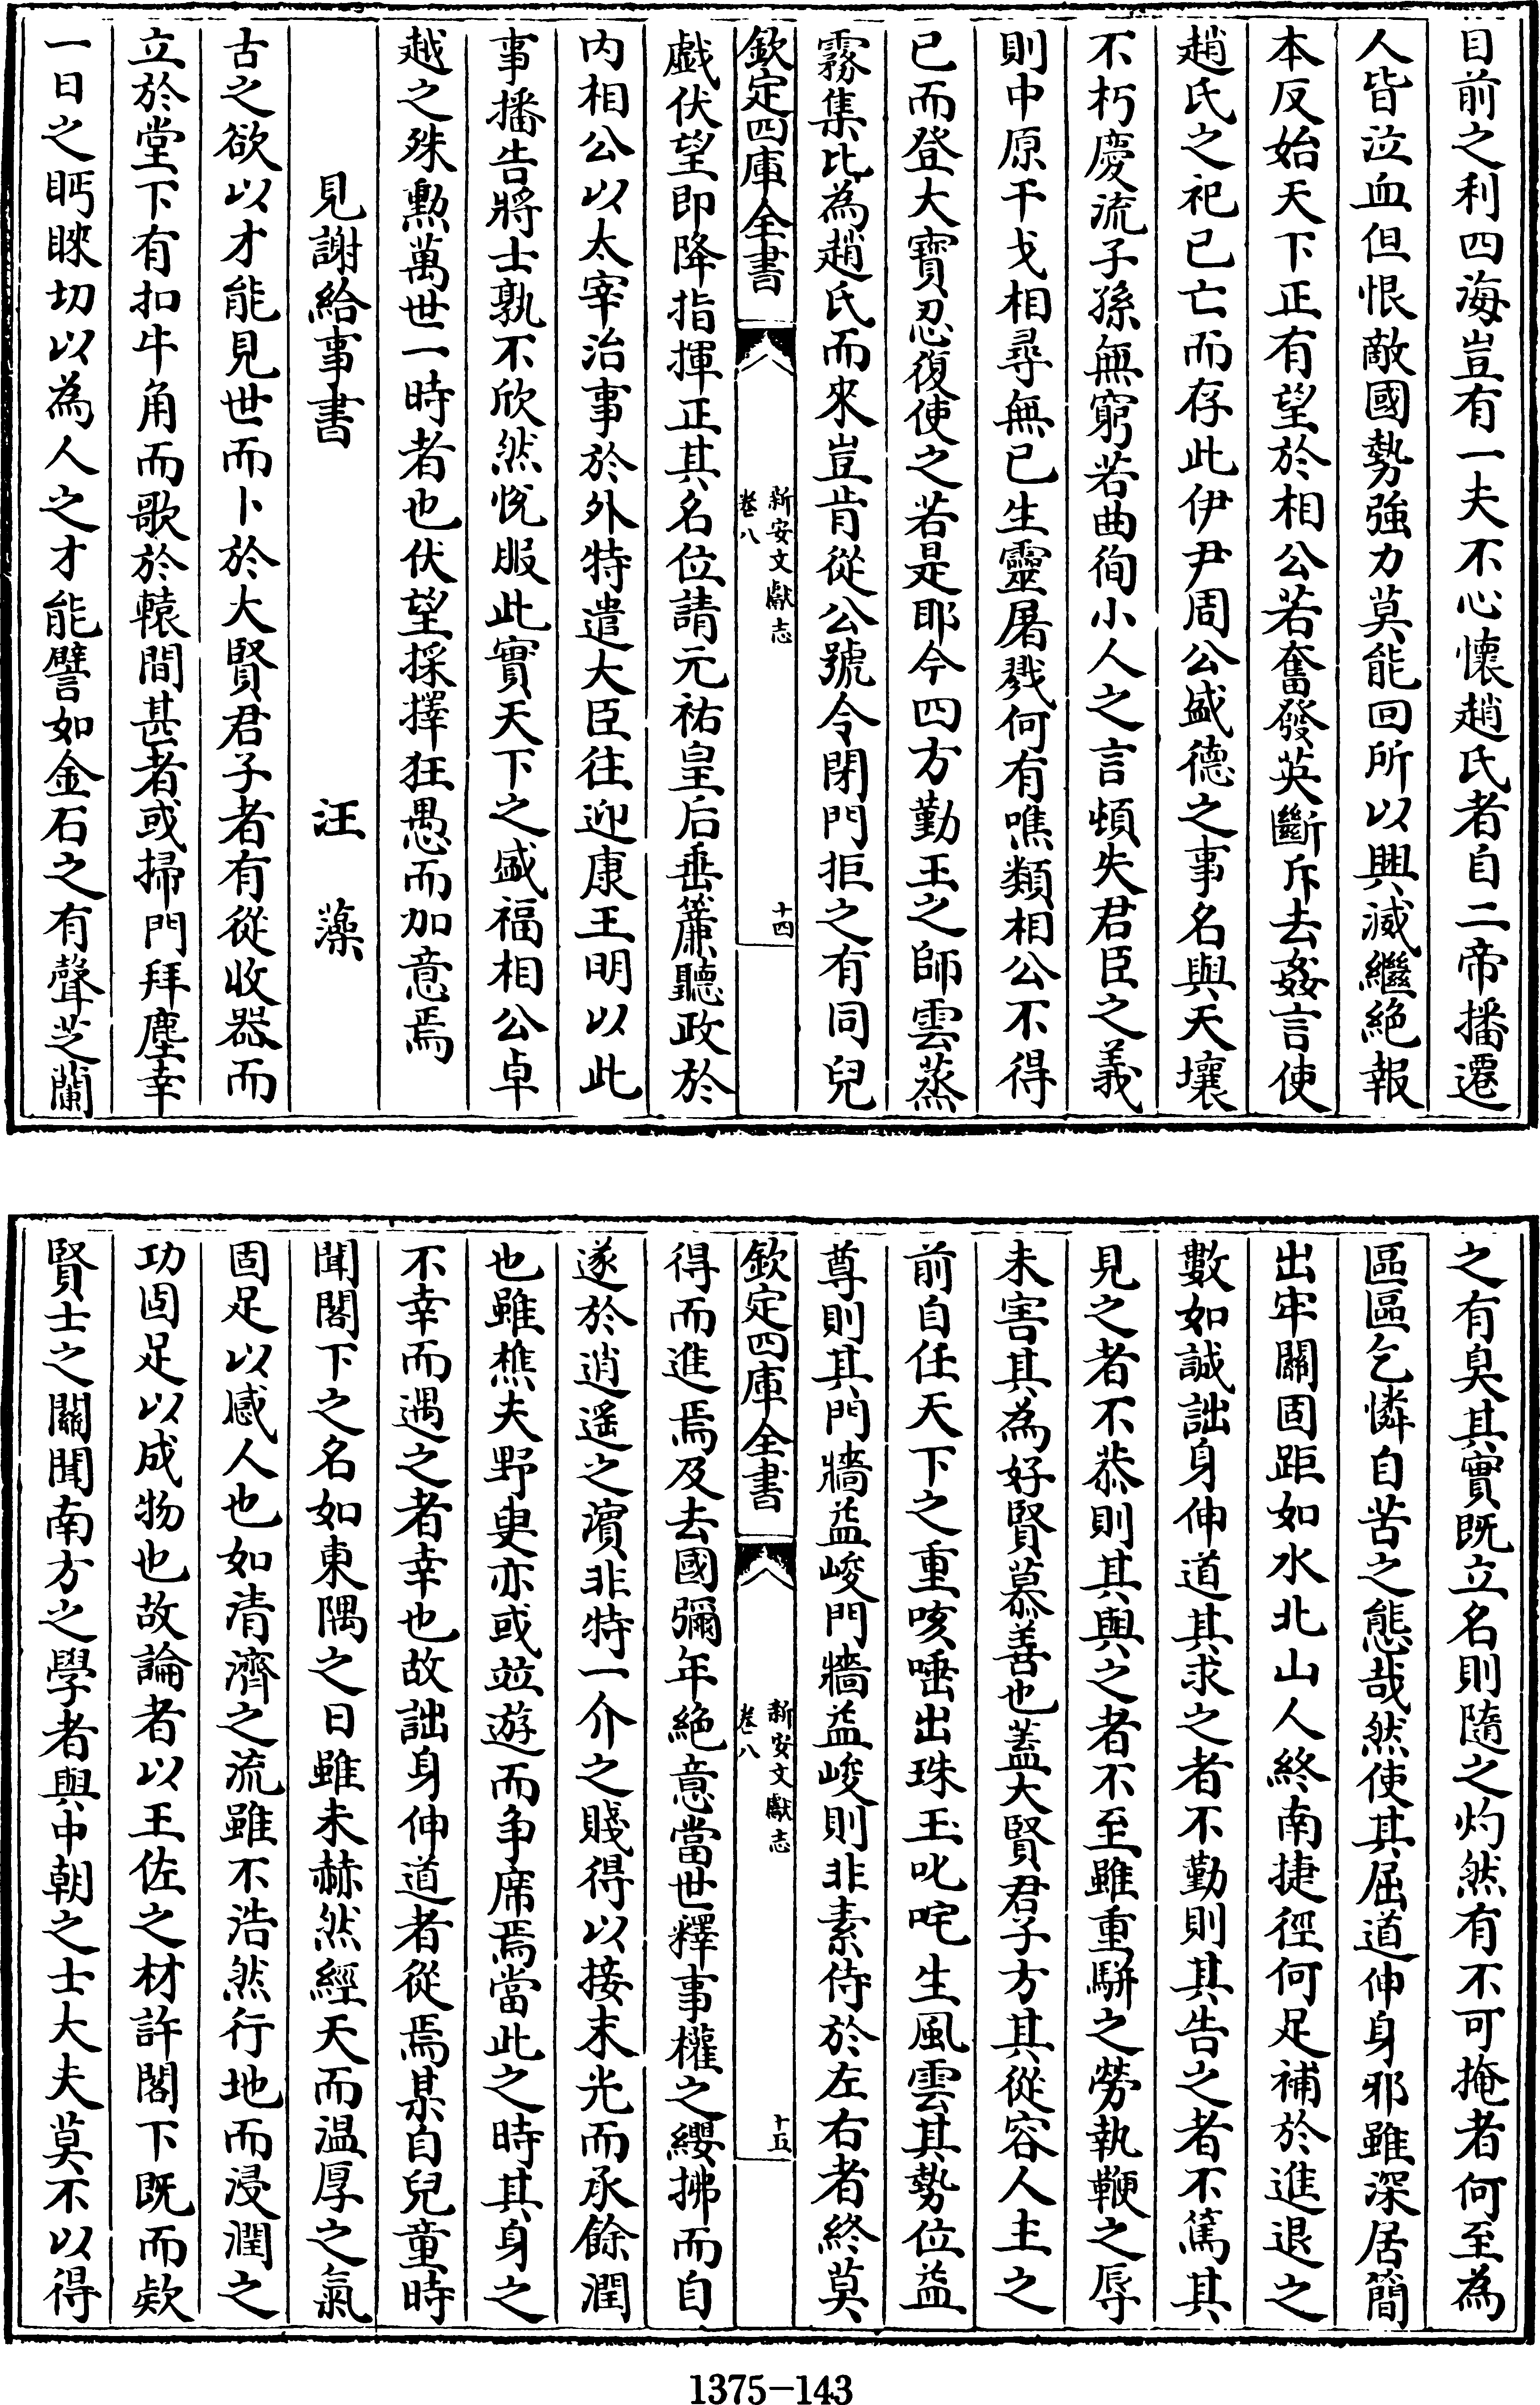 目前之利四海豈有一夫不心懷趙氏者自二帝播遷
人皆泣血但恨敵國勢強力莫能回所以興滅繼絶報
本反始天下正有望於相公若奮發英斷斥去姦言使
趙氏之祀已亡而存此伊尹周公盛德之事名與天壤
不朽慶流子孫無窮若曲徇小人之言頓失君臣之義
則中原干戈相尋無已生靈屠戮何有噍類相公不得
已而登大寶忍復使之若是耶今四方勤王之師雲蒸
霧集比為趙氏而來豈肯從公號令閉門拒之有同兒
欽定四庫全書
新安文獻志
卷八
十四
戯伏望即降指揮正其名位請元祐皇后垂簾聽政於
内相公以太宰治事於外特遣大臣往迎康王明以此
事播告將士孰不欣然悦服此實天下之盛福相公卓
越之殊勲萬世一時者也伏望採擇狂愚而加意焉
見謝給事書 汪藻
古之欲以才能見世而卜於大賢君子者有從收器而
立於堂下有扣牛角而歌於轅間甚者或掃門拜塵幸
一日之眄睞切以為人之才能譬如金石之有聲芝蘭
之有臭其實既立名則隨之灼然有不可掩者何至為
區區乞憐自苦之態哉然使其屈道伸身邪雖深居簡
出牢關固距如水北山人終南捷徑何足補於進退之
數如誠詘身伸道其求之者不勤則其告之者不篤其
見之者不恭則其與之者不至雖重騈之勞執鞭之辱
未害其為好賢慕善也蓋大賢君子方其從容人主之
前自任天下之重咳唾出珠玉叱咤生風雲其勢位益
尊則其門牆益峻門牆益峻則非素侍於左右者終莫
欽定四庫全書
新安文獻志
卷八
十五
得而進焉及去國彌年絶意當世釋事權之纓拂而自
遂於逍遥之濵非特一介之賤得以接末光而承餘潤
也雖樵夫野叟亦或竝遊而争席焉當此之時其身之
不幸而遇之者幸也故詘身伸道者從焉某自兒童時
聞閣下之名如東隅之日雖未赫然經天而温厚之氣
固足以感人也如清濟之流雖不浩然行地而浸潤之
功固足以成物也故論者以王佐之材許閣下既而欵
賢士之關聞南方之學者與中朝之士大夫莫不以得
1375-143